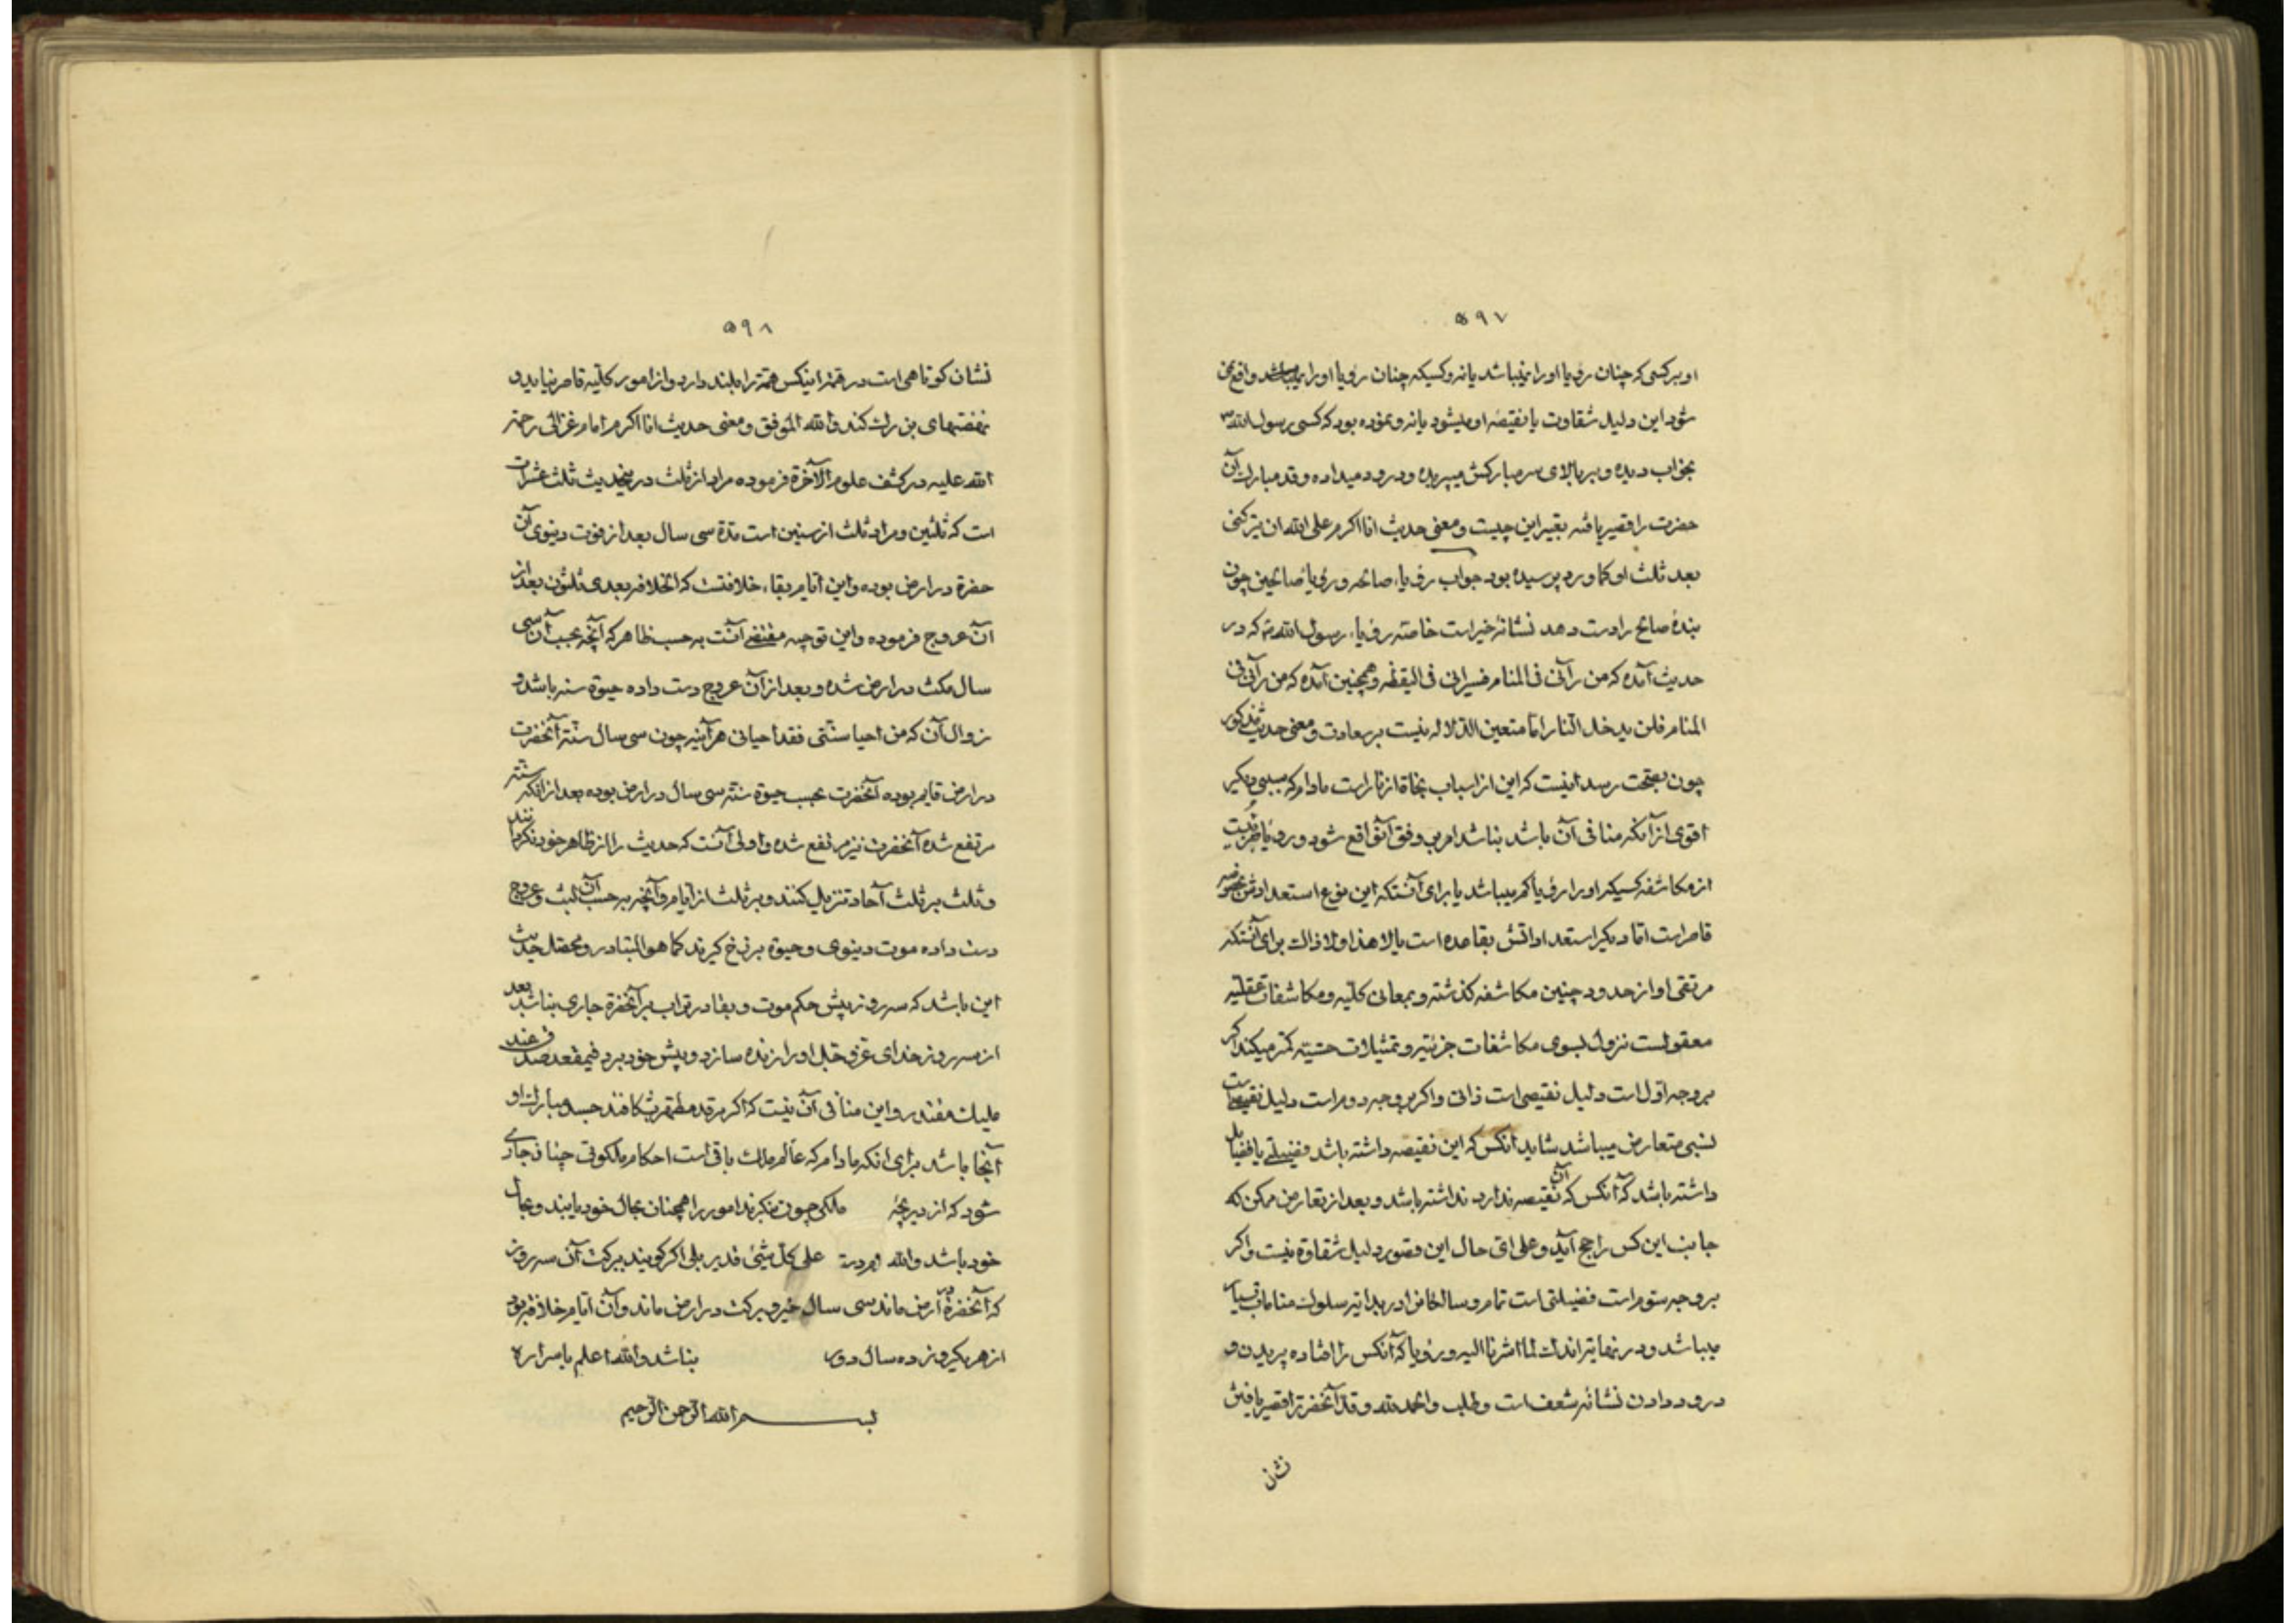 ۵۹۷
او بر کسی که چنان رؤیا او را نمیباشد یا نه و کسیکه چنان رؤیا او را میباشد واقع
شود این دلیل شقاوت یا نقیصه او میشود یا نه و نموده بود که کسی رسول الله
بخواب دیده و بر بالای سر مبارکش میپریده و درود میداده و قد مبارک آن
حضرت را قصیر یافته تعبیر این چیست و معنی حدیث انا اکرم علی الله ان یترکنی
بعد ثلث او کما ورد پرسیده بود جواب رؤیاء صالحه و رؤیا صالحین چون
بندهٔ صالح را دست دهد نشانهٔ خیر است خاصته رؤیاء رسول الله که در
حدیث آمده که من رآنی فی المنام فسیرانی فی الیقظه و همچنین آمده که من رآنی فی
المنام فلن یدخل النار اما متعین الدلاله نیست بر سعادت و معنی حدیث مذکور
چون بصحت رسد اینست که این از اسباب نجاة از نار است مادام که سببی دیگر
اقوی از آنکه منافی آن باشد نباشد امر بر وفق آن واقع شود و رؤیا
از مکاشفه کسیکه او را رؤیا کم میباشد یا برای آنستکه این نوع استعداد
قاصر است اما دیگر استعداداتش بقاعده است یا لا هذا و لا ذالک برای آنستکه
مرتقی او از حدود چنین مکاشفه گذشته و بمعانی کلیه و مکاشفات عقلیه
معقولست نزول بسوی مکاشفات جزئیه و تمثیلات حسیته کمتر میکند اگر
بر وجه اول است دلیل نقیصی است ذاتی و اگر بر وجه دوم است دلیل نقیصه
نسبی متعارض میباشد شاید آنکس که این نقیصه داشته باشد فضیلتی یا فضایل
داشته باشد که آنکس که آن نقیصه ندارد نداشته باشد و بعد از تعارض ممکن که
جانب این کس راجح آید و علی ای حال این قصور دلیل شقاوة نیست و اگر
بر وجه ستوم است فضیلتی است تمام و سالکان را در بدایته سلوک منامات بسیار
میباشد و در نهایته اندک لما اشرنا الیه و رؤیا که آنکس را افتاده پریدن و
درود دادن نشانه شعف است و طلب و الحمد لله و قد آنحضرت را قصیر یافتن
۵۹۸
نشان کوتاهی است در همته اینکس همته را بلند دارد و از امور کلیه قاصر نیاید و
نهضتهای بزرک کند و الله الموفق و معنی حدیث انا اکرم امام غزالی رحمة
الله علیه در کشف علوم الآخرة فرموده مراد از ثلث در این حدیث ثلث عشرات
است که ثلثین و مراد ثلث از سنین است مدة سی سال بعد از فوت دنیوی آن
حضرة در ارض بوده و این ایام بقاء خلافتست که الخلافه بعدی ثلثون بعد از
آن عروج فرموده و این توجیه مقتضی آنست به حسب ظاهر که آنچه بحسب آن سی
سال مکث در ارض شده و بعد از آن عروج دست داده حیوة سنه باشد و
زوال آن که من احیا سنتی فقد احیانی هر آینه چون سی سال سنة آنحضرت
در ارض قایم بوده آنحضرت بحسب حیوة سنته سی سال در ارض بوده بعد از آنکه سنته
مرتفع شده آنحضرت نیز مرتفع شده و اولی آنست که حدیث را از ظاهر خود نگردانند
و ثلث بر ثلث آحاد تنزیل کنند و بر ثلث از ایام و آنچه بر حسب آن لبث و عروج
دست داده موت دنیوی و حیوة برزخ گیرند کما هو المتبادر و محصل حدیث
این باشد که سه روز پیش حکم موت و بقا در تراب بر آنحضرة جاری نباشد بعد
از سه روز خدای عز و جل او را زنده سازد و پیش خود برد فی مقعد صدق عند
ملیک مقتدر و این منافی آن نیست که اگر مرقد مطهرش کافند جسد مبارک او
آنجا باشد برای انکه مادام که عالم ملک باقی است احکام ملکوتی چنان جاری
شود که از دریچهٔ ملکی چون نگرند امور را همچنان بحال خود یابند و بحال
خود باشد والله علی کل شیئ قدیر بلی اگر گویند ببرکت آن سه روز
که آنحضرة در ارض ماند سی سال خیر و برکت در ارض ماند و آن ایام خلافة بود
از هر یکروز ده سال دور نباشد والله اعلم باسراره
بسم الله الرحمن الرحیم